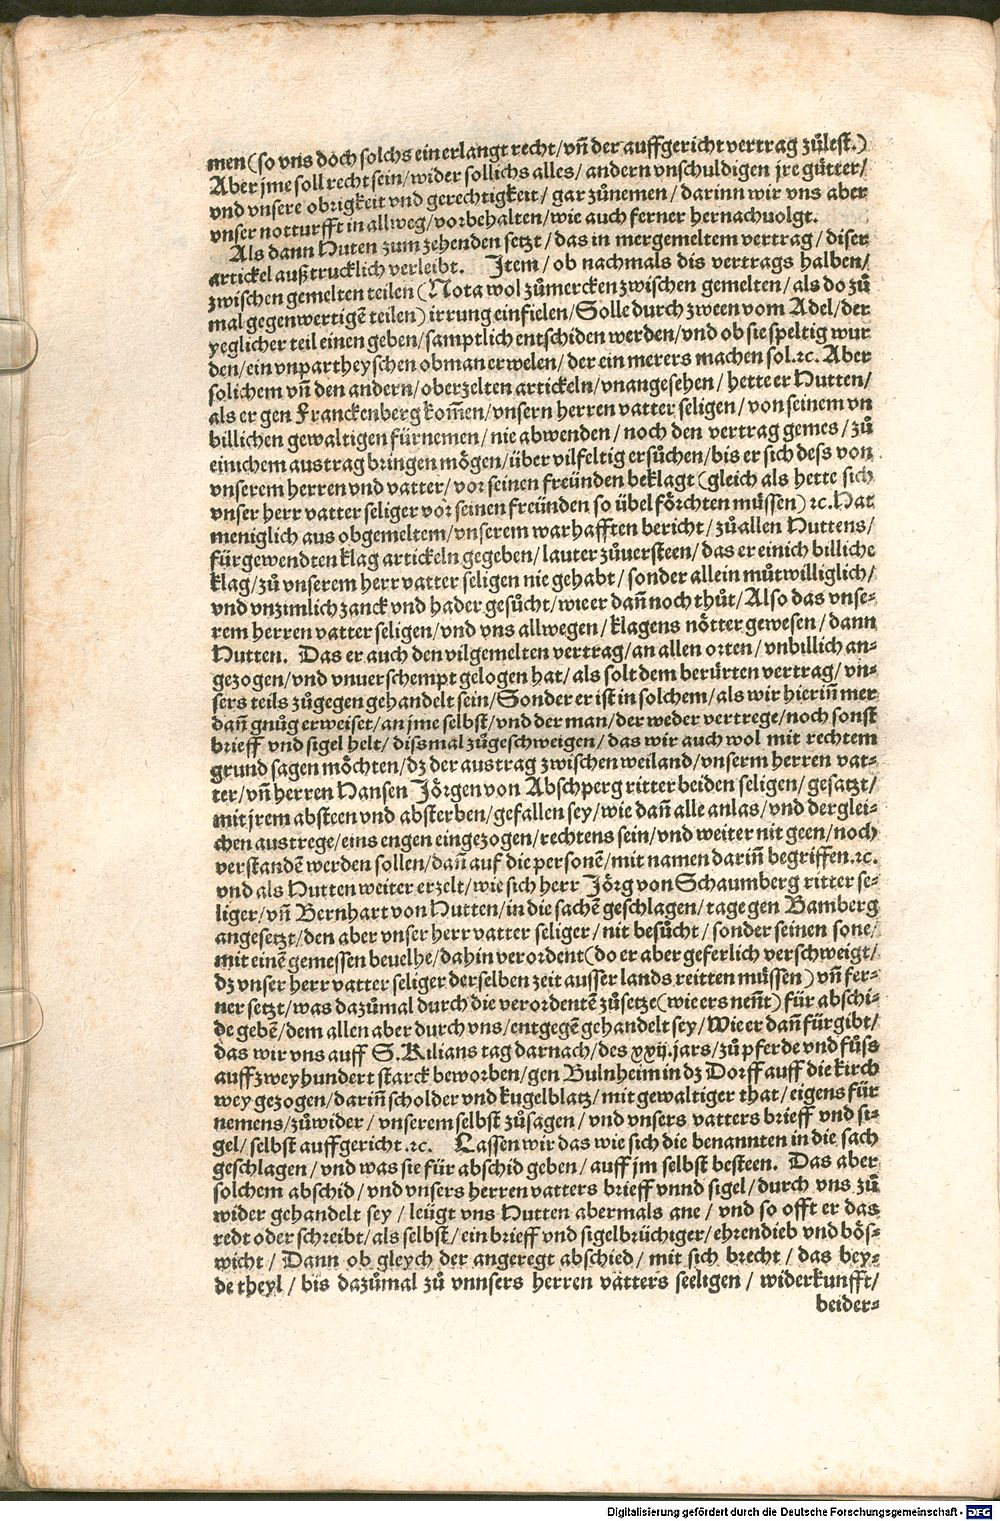 men (so vns doch solchs ein erlangt recht / vn̄ der auffgericht vertrag zůlest.)
Aber jme soll recht sein / wider sollichs alles / andern vnschuldigen jre gütter /
vnd vnsere obrigkeit vnd gerechtigkeit / gar zůnemen / darinn wir vns aber
vnser notturfft in allweg / vorbehalten / wie auch ferner hernachuolgt.
Als dann Huten zum zehenden setzt / das in mergemeltem vertrag / diser
artickel außtrucklich verleibt. Item / ob nachmals dis vertrags halben /
zwischen gemelten teilen (Nota wol zůmercken zwischen gemelten / als do zů
mal gegenwertigē teilen) irrung einfielen / Solle durch zween vom Adel / der
yeglicher teil einen geben / samptlich entschiden werden / vnd ob sie speltig wur
den / ein vnpartheyschen obman erwelen / der ein merers machen sol.⁊c. Aber
solichem vn̄ den andern / oberzelten artickeln / vnangesehen / hette er Hutten /
als er gen Franckenberg kom̄en / vnsern herren vatter seligen / von seinem vn
billichen gewaltigen fürnemen / nie abwenden / noch den vertrag gemes / zů
einichem austrag bringen mögen / über vilfeltig ersůchen / bis er sich dess von
vnserem herren vnd vatter / vor seinen freünden beklagt (gleich als hette sich
vnser herr vatter seliger vor seinen freünden so übel förchten müssen) ⁊c. Hat
meniglich aus obgemeltem / vnserem warhafften bericht / zů allen Huttens /
fürgewendten klag artickeln gegeben / lauter zůuersteen / das er einich billiche
klag / zů vnserem herr vatter seligen nie gehabt / sonder allein můtwilliglich /
vnd vnzimlich zanck vnd hader gesůcht / wie er dan̄ noch thůt / Also das vnse-
rem herren vatter seligen / vnd vns allwegen / klagens nötter gewesen / dann
Hutten. Das er auch den vilgemelten vertrag / an allen orten / vnbillich an-
gezogen / vnd vnuerschempt gelogen hat / als solt dem berürten vertrag / vn-
sers teils zůgegen gehandelt sein / Sonder er ist in solchem / als wir hierin̄ mer
dan̄ gnůg erweiset / an jme selbst / vnd der man / der weder vertrege / noch sonst
brieff vnd sigel helt / dißmal zůgeschweigen / das wir auch wol mit rechtem
grund sagen möchten / dz der austrag zwischen weiland / vnserm herren vat-
ter / vn̄ herren Hansen Jörgen von Abschperg ritter beiden seligen / gesatzt /
mit jrem absteen vnd absterben / gefallen sey / wie dan̄ alle anlas / vnd derglei-
chen austrege / eins engen eingezogen / rechtens sein / vnd weiter nit geen / noch
verstandē werden sollen / dan̄ auf die personē / mit namen darin̄ begriffen.⁊c.
vnd als Hutten weiter erzelt / wie sich herr Jörg von Schaumberg ritter se-
liger / vn̄ Bernhart von Hutten / in die sachē geschlagen / tage gen Bamberg
angesetzt / den aber vnser herr vatter seliger / nit besůcht / sonder seinen sone /
mit einē gemessen beuelhe / dahin verordent (do er aber geferlich verschweigt /
dz vnser herr vatter seliger derselben zeit ausser lands reitten müssen) vn̄ fer-
ner setzt / was dazůmal durch die verordentē zůsetze (wie ers nen̄t) für abschi-
de gebē / dem allen aber durch vns / entgegē gehandelt sey / Wie er dan̄ fürgibt /
das wir vns auff S. Kilians tag darnach / des xxij. jars / zů pferde vnd fůss
auff zweyhundert starck beworben / gen Bulnheim in dz Dorff auff die kirch
wey gezogen / darin̄ scholder vnd kugelblatz / mit gewaltiger that / eigens für
nemens / zůwider / vnserem selbst zůsagen / vnd vnsers vatters brieff vnd si-
gel / selbst auffgericht.⁊c. Lassen wir das wie sich die benannten in die sach
geschlagen / vnd was sie für abschid geben / auff jm selbst besteen. Das aber
solchem abschid / vnd vnsers herren vatters brieff vnnd sigel / durch vns zů
wider gehandelt sey / leügt vns Hutten abermals ane / vnd so offt er das
redt oder schreibt / als selbst / ein brieff vnd sigelbrüchiger / ehrendieb vnd bös-
wicht / Dann ob gleych der angeregt abschied / mit sich brecht / das bey-
de theyl / bis dazůmal zů vnnsers herren vätters seeligen / widerkunfft /
beider-
Digitalisierung gefördert durch die Deutsche Forschungsgemeinschaft - DFG